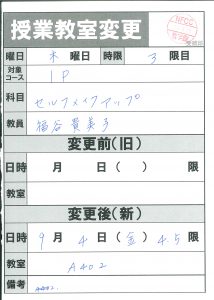 授業教室変更
曜日 木 曜日 時限 3 限目
対象コース 1P
科目 セルフメイクアップ
教員 福谷貴美子
変更前(旧)
日時 月 日( ) 限
教室
変更後(新)
日時 9月 4日(金) 4.5限
教室 A402
備考 A402.